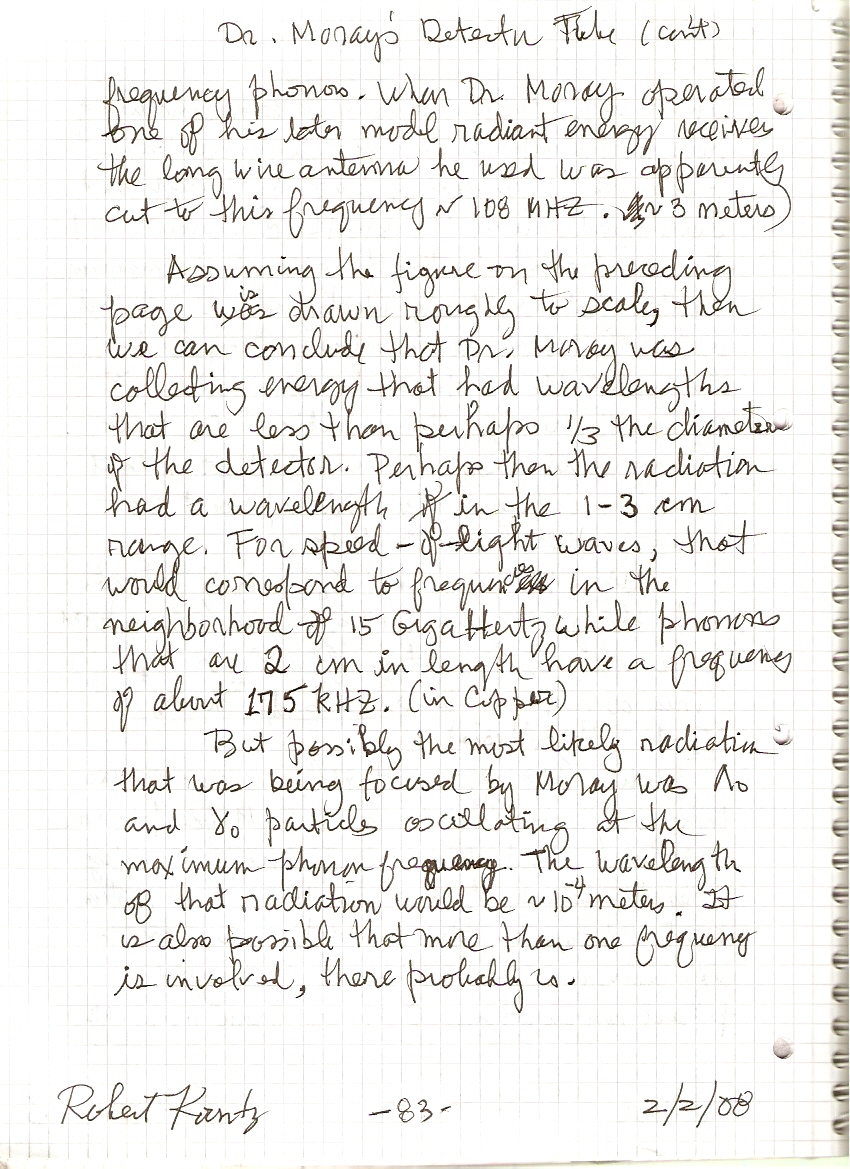 Dr. Moray's Detector Tube (con't)
frequency phonons. When Dr. Moray operated
one of his later model radiant energy receivers
the long wire antenna he used was apparently
cut to this frequency ~ 108 MHZ. (~ 3 meters)
Assuming the figure on the preceding
page is drawn roughly to scale, then
we can conclude that Dr. Moray was
collecting energy that had wavelengths
that are less than perhaps 1/3 the diameter
of the detector. Perhaps then the radiation
had a wavelength in the 1-3 cm
range. For speed-of-light waves, that
would correspond to frequencies in the
neighborhood of 15 GigaHertz while phonons
that are 2 cm in length have a frequency
of about 175 kHz. (in Copper)
But possibly the most likely radiation
that was being focused by Moray was
and particles oscillating at the
maximum phonon frequency. The wavelength
of that radiation would be ~ 10⁻⁴ meters. It
is also possible that more than one frequency
is involved, there probably is.
Robert -83- 2/2/08